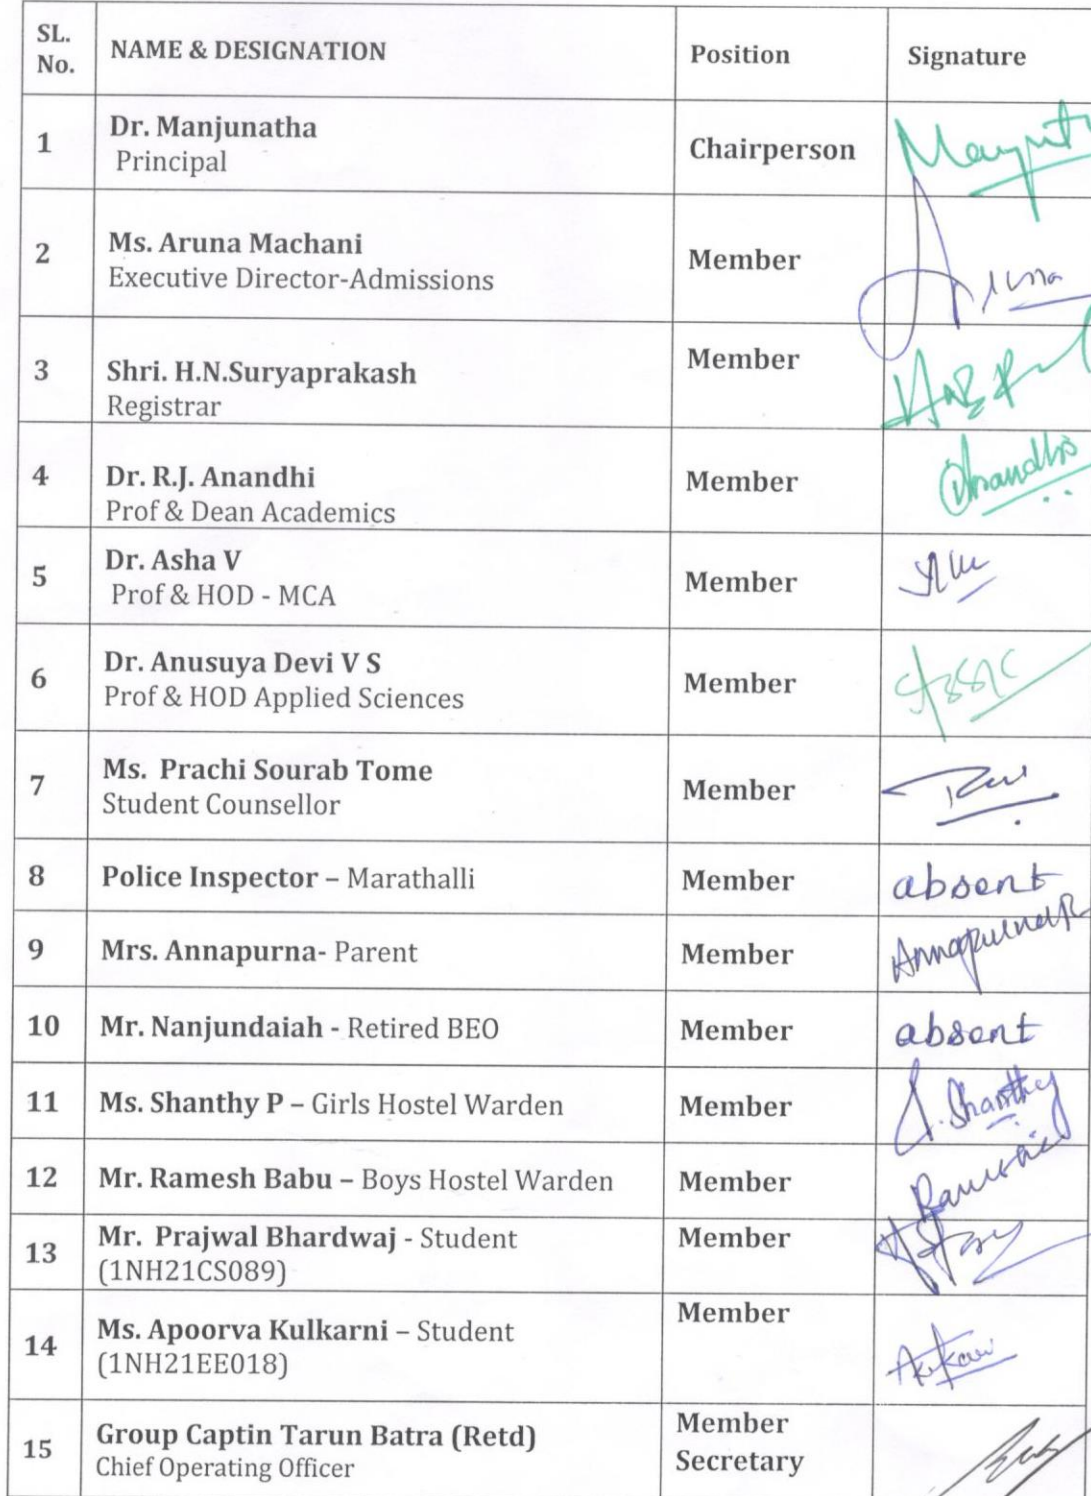 SL. No. NAME & DESIGNATION Position Signature
1 Dr. Manjunatha
Principal Chairperson
2 Ms. Aruna Machani
Executive Director-Admissions Member Aruna
3 Shri. H.N.Suryaprakash
Registrar Member
4 Dr. R.J. Anandhi
Prof & Dean Academics Member Anandhi
5 Dr. Asha V
Prof & HOD - MCA Member
6 Dr. Anusuya Devi V S
Prof & HOD Applied Sciences Member
7 Ms. Prachi Sourab Tome
Student Counsellor Member
8 Police Inspector – Marathalli Member absent
9 Mrs. Annapurna- Parent Member
10 Mr. Nanjundaiah - Retired BEO Member absent
11 Ms. Shanthy P – Girls Hostel Warden Member Shanthy
12 Mr. Ramesh Babu – Boys Hostel Warden Member
13 Mr. Prajwal Bhardwaj - Student
(1NH21CS089) Member
14 Ms. Apoorva Kulkarni – Student
(1NH21EE018) Member
15 Group Captin Tarun Batra (Retd)
Chief Operating Officer Member
Secretary